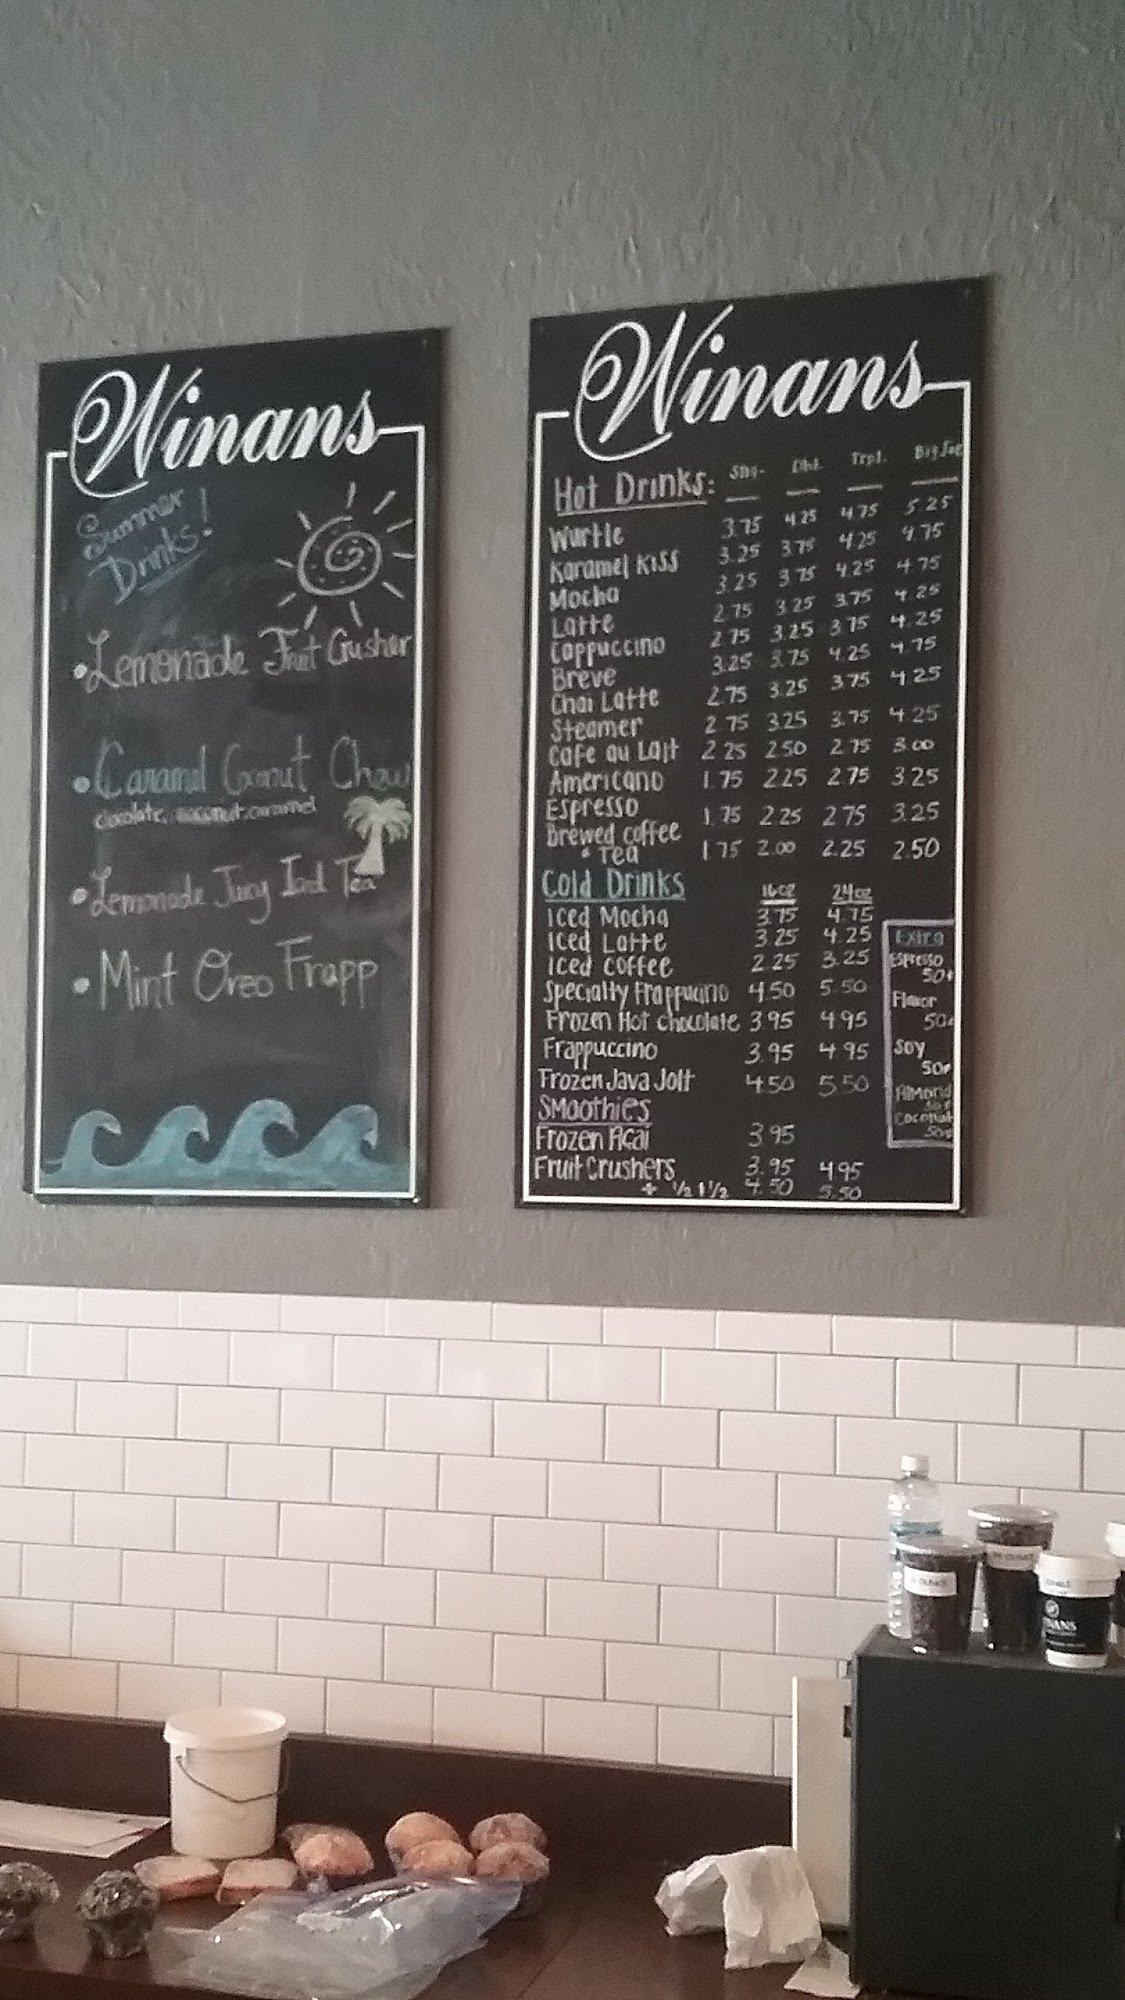 Winans
Summer
Drinks!
• Lemonade Fruit Crusher
• Caramel Coconut Chew
chocolate, coconut, caramel
• Lemonade Juicy Iced Tea
• Mint Oreo Frapp
Winans
Hot Drinks: Sng. Dbl. Trpl. Big Joe
Wurtle 3.75 4.25 4.75 5.25
Karamel Kiss 3.25 3.75 4.25 4.75
Mocha 3.25 3.75 4.25 4.75
Latte 2.75 3.25 3.75 4.25
Cappuccino 2.75 3.25 3.75 4.25
Breve 3.25 3.75 4.25 4.75
Chai Latte 2.75 3.25 3.75 4.25
Steamer 2.75 3.25 3.75 4.25
Cafe au Lait 2.25 2.50 2.75 3.00
Americano 1.75 2.25 2.75 3.25
Espresso 1.75 2.25 2.75 3.25
Brewed coffee
& Tea 1.75 2.00 2.25 2.50
Cold Drinks 16oz 24oz
Iced Mocha 3.75 4.75
Iced Latte 3.25 4.25
Iced coffee 2.25 3.25
Specialty Frappucino 4.50 5.50
Frozen Hot chocolate 3.95 4.95
Frappuccino 3.95 4.95
Frozen Java Jolt 4.50 5.50
Smoothies
Frozen Acai 3.95
Fruit Crushers 3.95 4.95
+ 1/2 & 1/2 4.50 5.50
Extra
Espresso
50¢
Flavor
50¢
Soy
50¢
Almond
50¢
Coconut
50¢